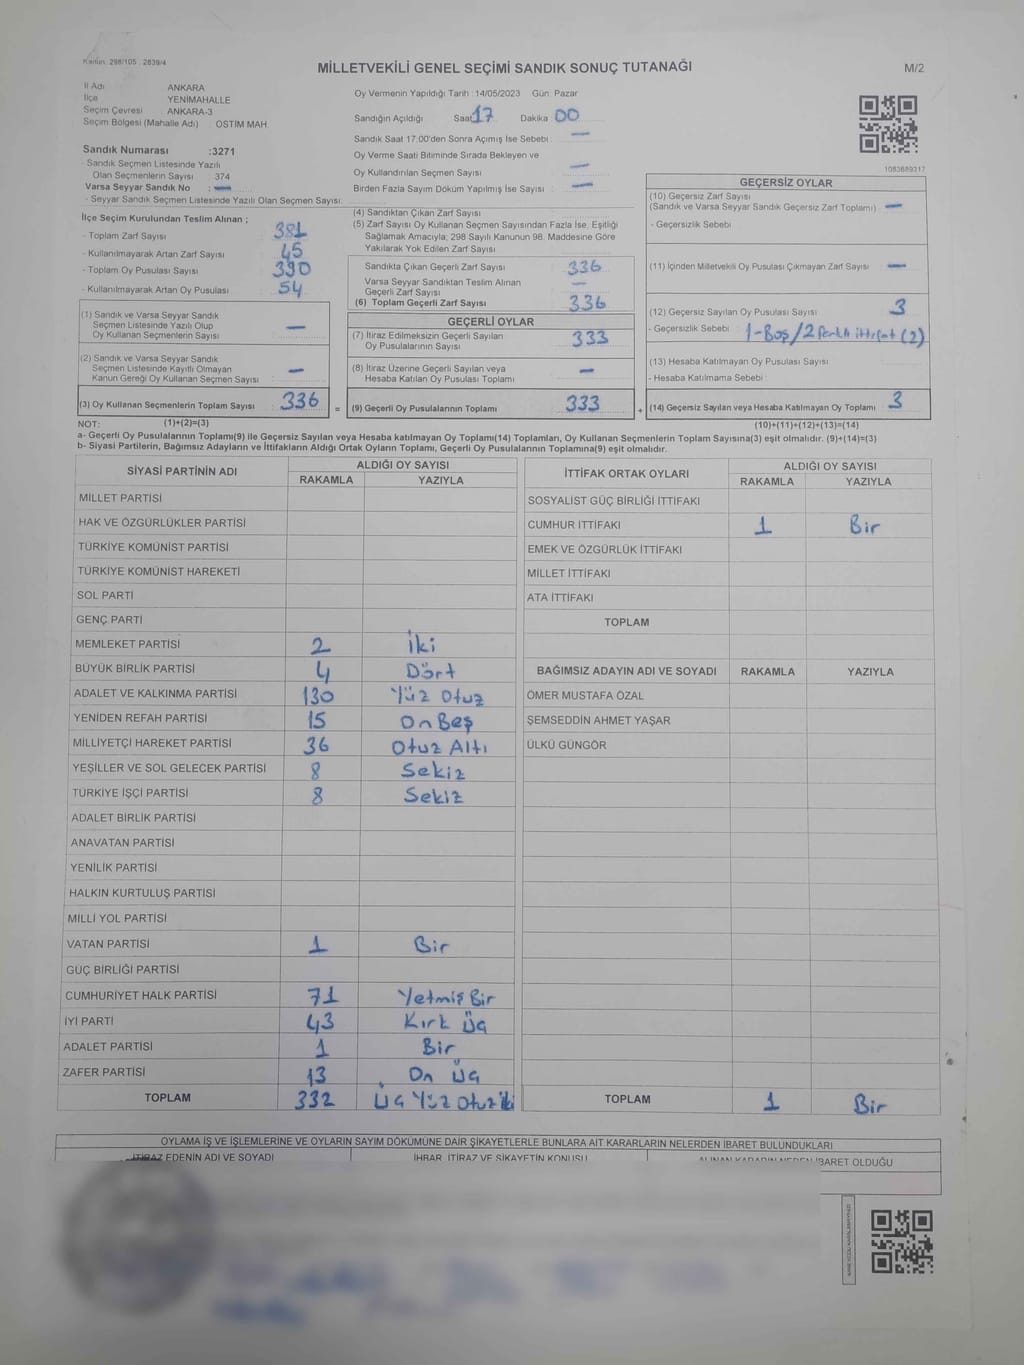 Kanun: 298/105 , 2839/4
MİLLETVEKİLİ GENEL SEÇİMİ SANDIK SONUÇ TUTANAĞI
M/2
İl Adı ANKARA
İlçe YENİMAHALLE
Seçim Çevresi ANKARA-3
Seçim Bölgesi (Mahalle Adı) : OSTİM MAH.
Sandık Numarası :3271
- Sandık Seçmen Listesinde Yazılı
Olan Seçmenlerin Sayısı : 374
Varsa Seyyar Sandık No : —
- Seyyar Sandık Seçmen Listesinde Yazılı Olan Seçmen Sayısı:
İlçe Seçim Kurulundan Teslim Alınan ;
- Toplam Zarf Sayısı 381
- Kullanılmayarak Artan Zarf Sayısı 45
- Toplam Oy Pusulası Sayısı 390
- Kullanılmayarak Artan Oy Pusulası 54
(1) Sandık ve Varsa Seyyar Sandık
Seçmen Listesinde Yazılı Olup
Oy Kullanan Seçmenlerin Sayısı —
(2) Sandık ve Varsa Seyyar Sandık
Seçmen Listesinde Kayıtlı Olmayan
Kanun Gereği Oy Kullanan Seçmen Sayısı —
(3) Oy Kullanan Seçmenlerin Toplam Sayısı 336 =
Oy Vermenin Yapıldığı Tarih :14/05/2023 Gün: Pazar
Sandığın Açıldığı Saat 17 Dakika 00
Sandık Saat 17:00'den Sonra Açılmış İse Sebebi: —
Oy Verme Saati Bitiminde Sırada Bekleyen ve
Oy Kullandırılan Seçmen Sayısı —
Birden Fazla Sayım Döküm Yapılmış İse Sayısı : —
(4) Sandıktan Çıkan Zarf Sayısı
(5) Zarf Sayısı Oy Kullanan Seçmen Sayısından Fazla İse, Eşitliği
Sağlamak Amacıyla; 298 Sayılı Kanunun 98. Maddesine Göre
Yakılarak Yok Edilen Zarf Sayısı
Sandıkta Çıkan Geçerli Zarf Sayısı 336
Varsa Seyyar Sandıktan Teslim Alınan
Geçerli Zarf Sayısı —
(6) Toplam Geçerli Zarf Sayısı 336
GEÇERLİ OYLAR
(7) İtiraz Edilmeksizin Geçerli Sayılan
Oy Pusulalarının Sayısı 333
(8) İtiraz Üzerine Geçerli Sayılan veya
Hesaba Katılan Oy Pusulası Toplamı —
(9) Geçerli Oy Pusulalarının Toplamı 333 +
1083689317
GEÇERSİZ OYLAR
(10) Geçersiz Zarf Sayısı
(Sandık ve Varsa Seyyar Sandık Geçersiz Zarf Toplamı) —
- Geçersizlik Sebebi
(11) İçinden Milletvekili Oy Pusulası Çıkmayan Zarf Sayısı —
(12) Geçersiz Sayılan Oy Pusulası Sayısı 3
- Geçersizlik Sebebi : 1-Boş/2 Farklı ittifat (2)
(13) Hesaba Katılmayan Oy Pusulası Sayısı
- Hesaba Katılmama Sebebi :
(14) Geçersiz Sayılan veya Hesaba Katılmayan Oy Toplamı 3
NOT: (1)+(2)=(3) (10)+(11)+(12)+(13)=(14)
a- Geçerli Oy Pusulalarının Toplamı(9) ile Geçersiz Sayılan veya Hesaba katılmayan Oy Toplamı(14) Toplamları, Oy Kullanan Seçmenlerin Toplam Sayısına(3) eşit olmalıdır. (9)+(14)=(3)
b- Siyasi Partilerin, Bağımsız Adayların ve İttifakların Aldığı Ortak Oyların Toplamı, Geçerli Oy Pusulalarının Toplamına(9) eşit olmalıdır.
SİYASİ PARTİNİN ADI ALDIĞI OY SAYISI
RAKAMLA YAZIYLA
MİLLET PARTİSİ
HAK VE ÖZGÜRLÜKLER PARTİSİ
TÜRKİYE KOMÜNİST PARTİSİ
TÜRKİYE KOMÜNİST HAREKETİ
SOL PARTİ
GENÇ PARTİ
MEMLEKET PARTİSİ 2 İki
BÜYÜK BİRLİK PARTİSİ 4 Dört
ADALET VE KALKINMA PARTİSİ 130 Yüz Otuz
YENİDEN REFAH PARTİSİ 15 On Beş
MİLLİYETÇİ HAREKET PARTİSİ 36 Otuz Altı
YEŞİLLER VE SOL GELECEK PARTİSİ 8 Sekiz
TÜRKİYE İŞÇİ PARTİSİ 8 Sekiz
ADALET BİRLİK PARTİSİ
ANAVATAN PARTİSİ
YENİLİK PARTİSİ
HALKIN KURTULUŞ PARTİSİ
MİLLİ YOL PARTİSİ
VATAN PARTİSİ 1 Bir
GÜÇ BİRLİĞİ PARTİSİ
CUMHURİYET HALK PARTİSİ 71 Yetmiş Bir
İYİ PARTİ 43 Kırk Üç
ADALET PARTİSİ 1 Bir
ZAFER PARTİSİ 13 On Üç
TOPLAM 332 Üç Yüz Otuz iki
İTTİFAK ORTAK OYLARI ALDIĞI OY SAYISI
RAKAMLA YAZIYLA
SOSYALİST GÜÇ BİRLİĞİ İTTİFAKI
CUMHUR İTTİFAKI 1 Bir
EMEK VE ÖZGÜRLÜK İTTİFAKI
MİLLET İTTİFAKI
ATA İTTİFAKI
TOPLAM
BAĞIMSIZ ADAYIN ADI VE SOYADI RAKAMLA YAZIYLA
ÖMER MUSTAFA ÖZAL
ŞEMSEDDİN AHMET YAŞAR
ÜLKÜ GÜNGÖR
TOPLAM 1 Bir
OYLAMA İŞ VE İŞLEMLERİNE VE OYLARIN SAYIM DÖKÜMÜNE DAİR ŞİKAYETLERLE BUNLARA AİT KARARLARIN NELERDEN İBARET BULUNDUKLARI
İTİRAZ EDENİN ADI VE SOYADI İHBAR, İTİRAZ VE ŞİKAYETİN KONUSU ALINAN KARARIN NEDEN İBARET OLDUĞU